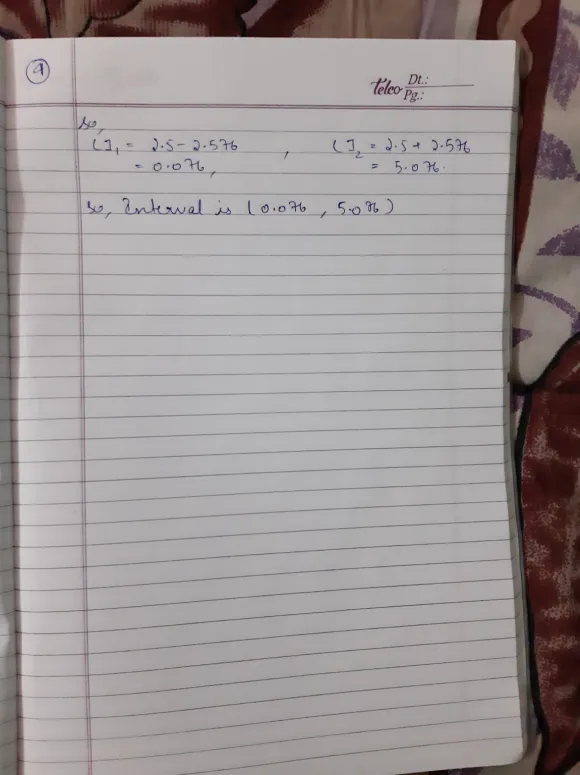 4
telco Dt.:
Pg.:
so,
CI₁ = 2.5 - 2.576 , CI₂ = 2.5 + 2.576
= 0.076, = 5.076.
so, Interval is (0.076 , 5.076)